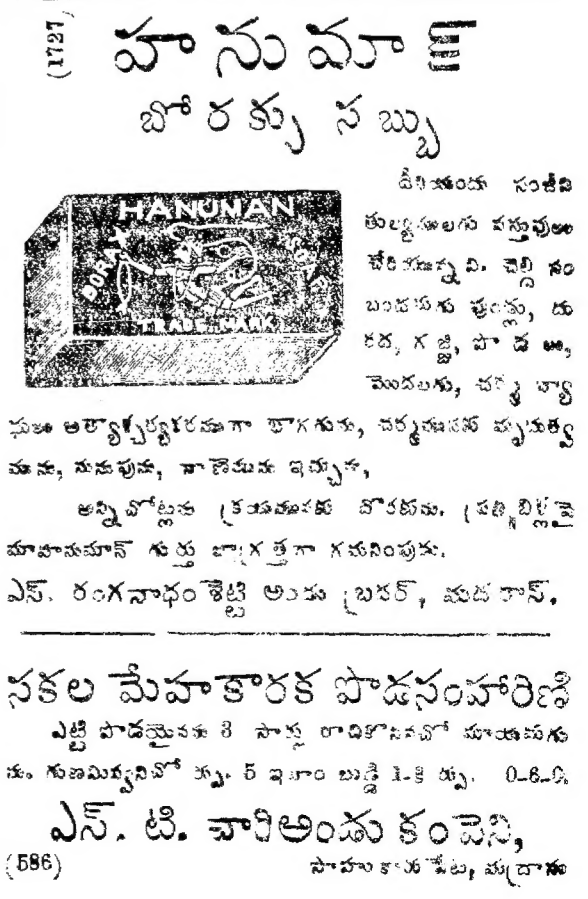 (1727)
హనుమాన్
బోరక్సు సబ్బు
HANUMAN
BORAX SOAP
TRADE MARK
దీనియందు సంజీవి
తుల్యములగు వస్తువులు
చేరియున్నవి. చెల్ది సం
బంధమగు పుండ్లు, దు
రద, గజ్జి, పొడలు,
మొదలగు, చర్మ వ్యా
ధులు అత్యాశ్చర్యకరముగా బాగగును, చర్మమునకు మృదుత్వ
మును, నునుపును, నాణెమును ఇచ్చును,
అన్నిచోట్లను క్రయమునకు దొరకును. ప్రతిబిళ్లపై
మాహనుమాన్ గుర్తు జాగ్రత్తగా గమనింపుడు.
ఎస్. రంగనాధంశెట్టి అండు బ్రదర్, మదరాస్.
సకల మేహకారక పొడసంహారిణి
ఎట్టి పొడయైనను 3 సార్లు రాచికొనినచో మాయమగు
ను. గుణమివ్వనిచో రు. 5 ఇనాం బుడ్డి 1-కి రు. 0-6-0.
ఎస్. టి. చారిఅండు కంపెని,
(586)
సాహుకారుపేట, మద్రాసు